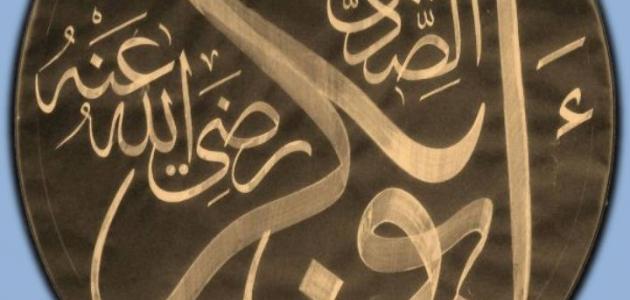 أبو بكر
الصِّدِّيق
رَضِيَ اللهُ عَنْهُ